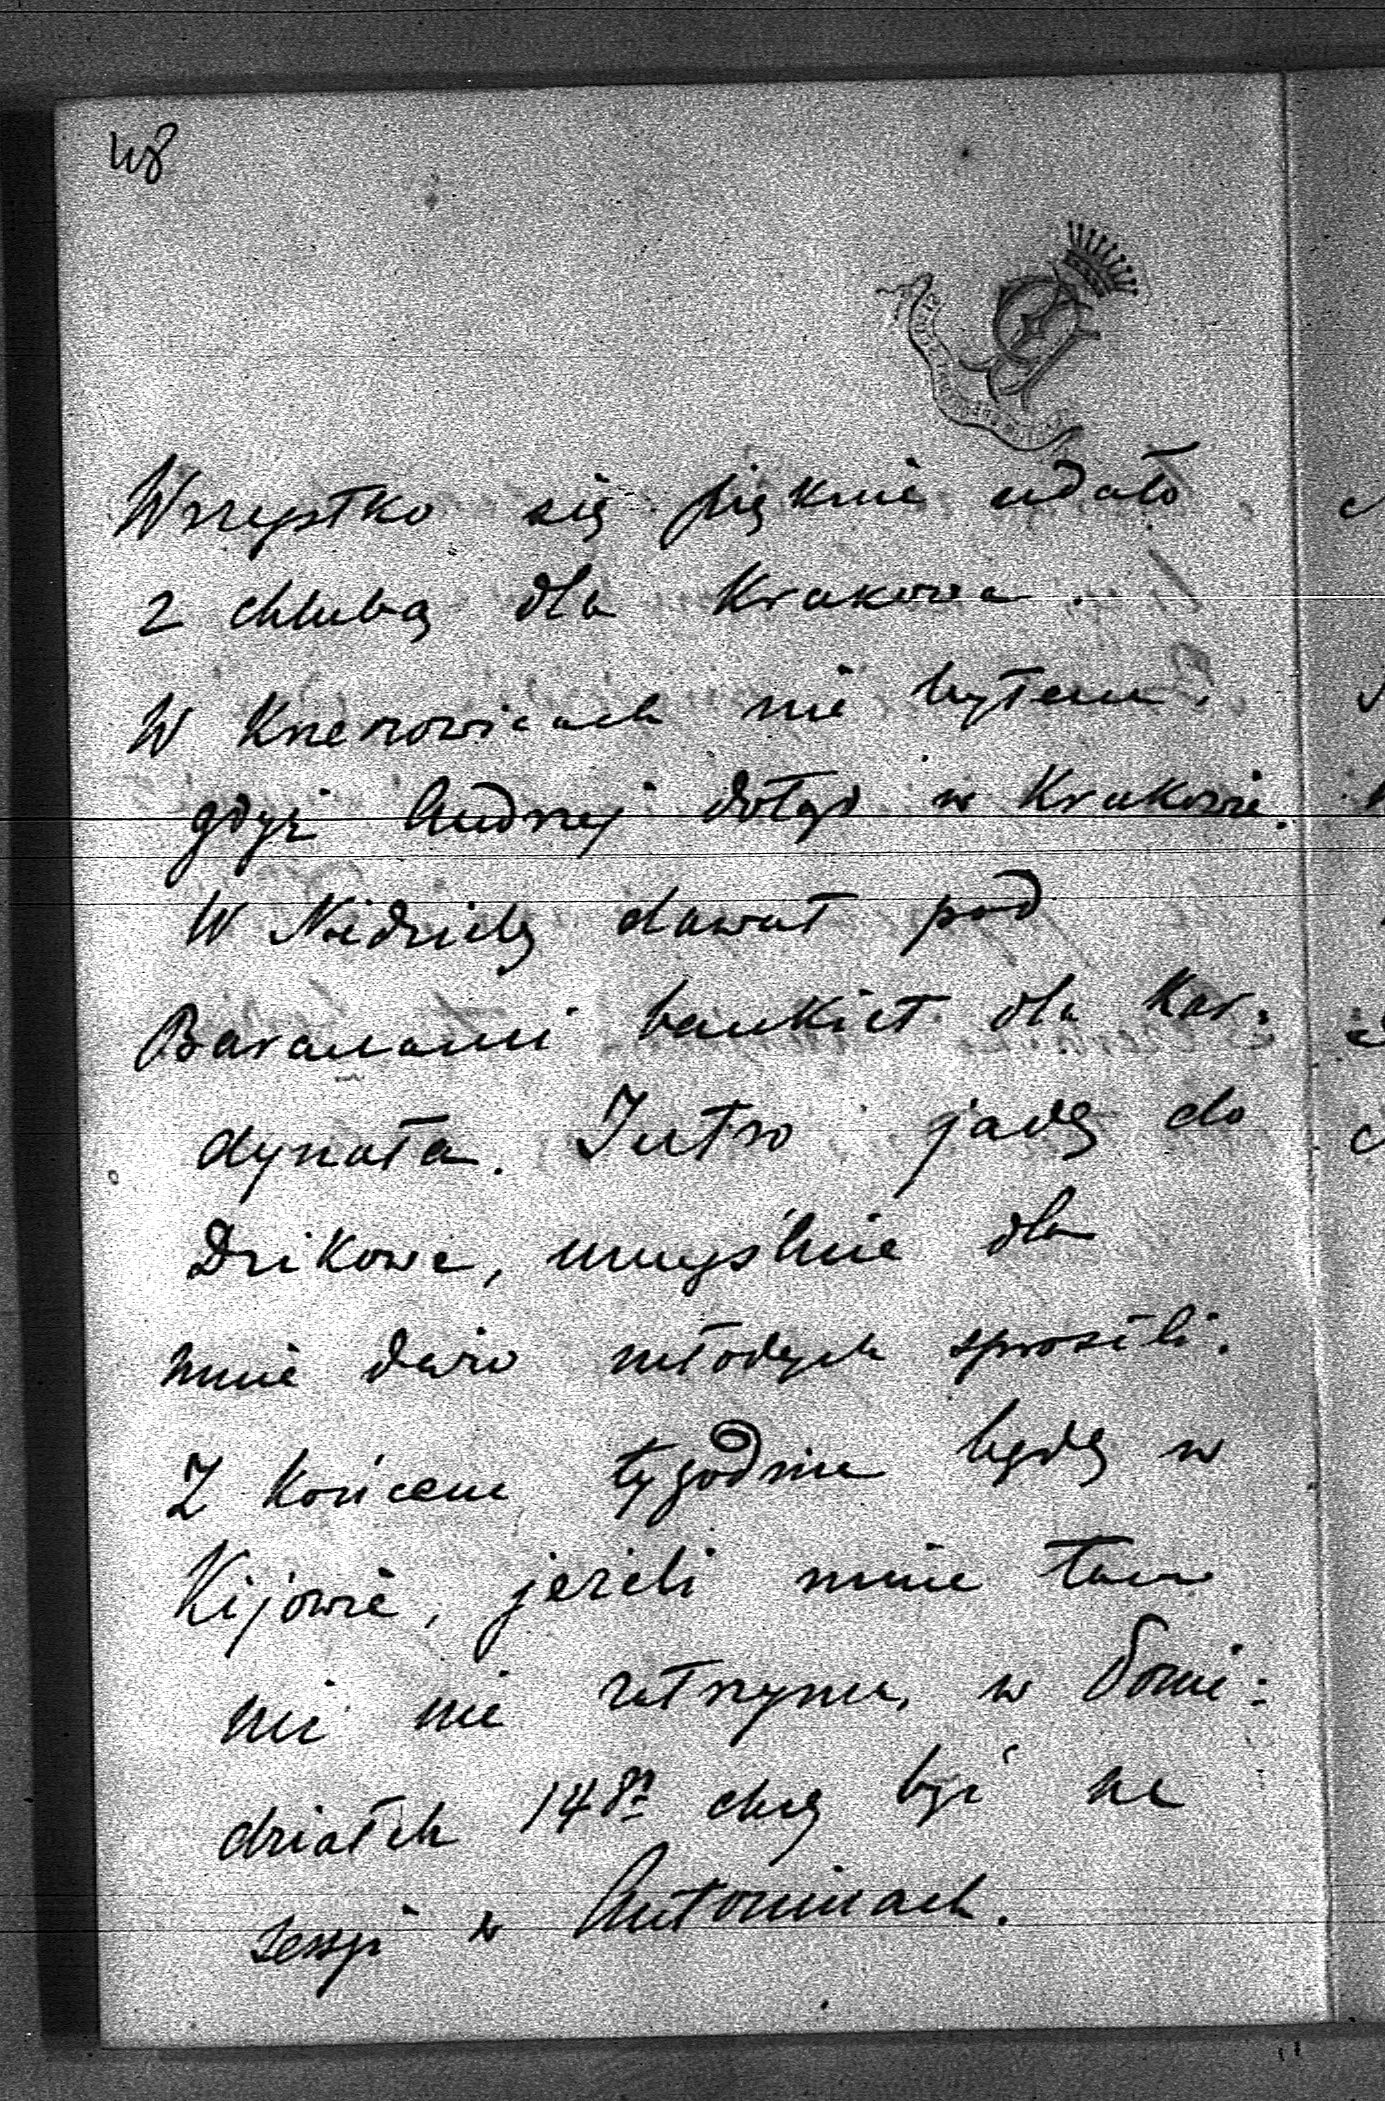 48
Wszystko się pięknie udało
z chlubą dla Krakowa.
W Krzeszowicach nie byłem,
gdyż Andrzej dotąd w Krakowie.
W Niedzielę dawał pod
Baranami bankiet dla Kar-
dynała. Jutro jadę do
Dzikowa, umyślnie dla
mnie dużo młodych sprosili.
Z końcem tygodnia będę w
Kijowie, jeżeli mnie tam
nic nie zatrzyma, w Ponie-
działek 14go chcę być na
sessji w Antoninach.